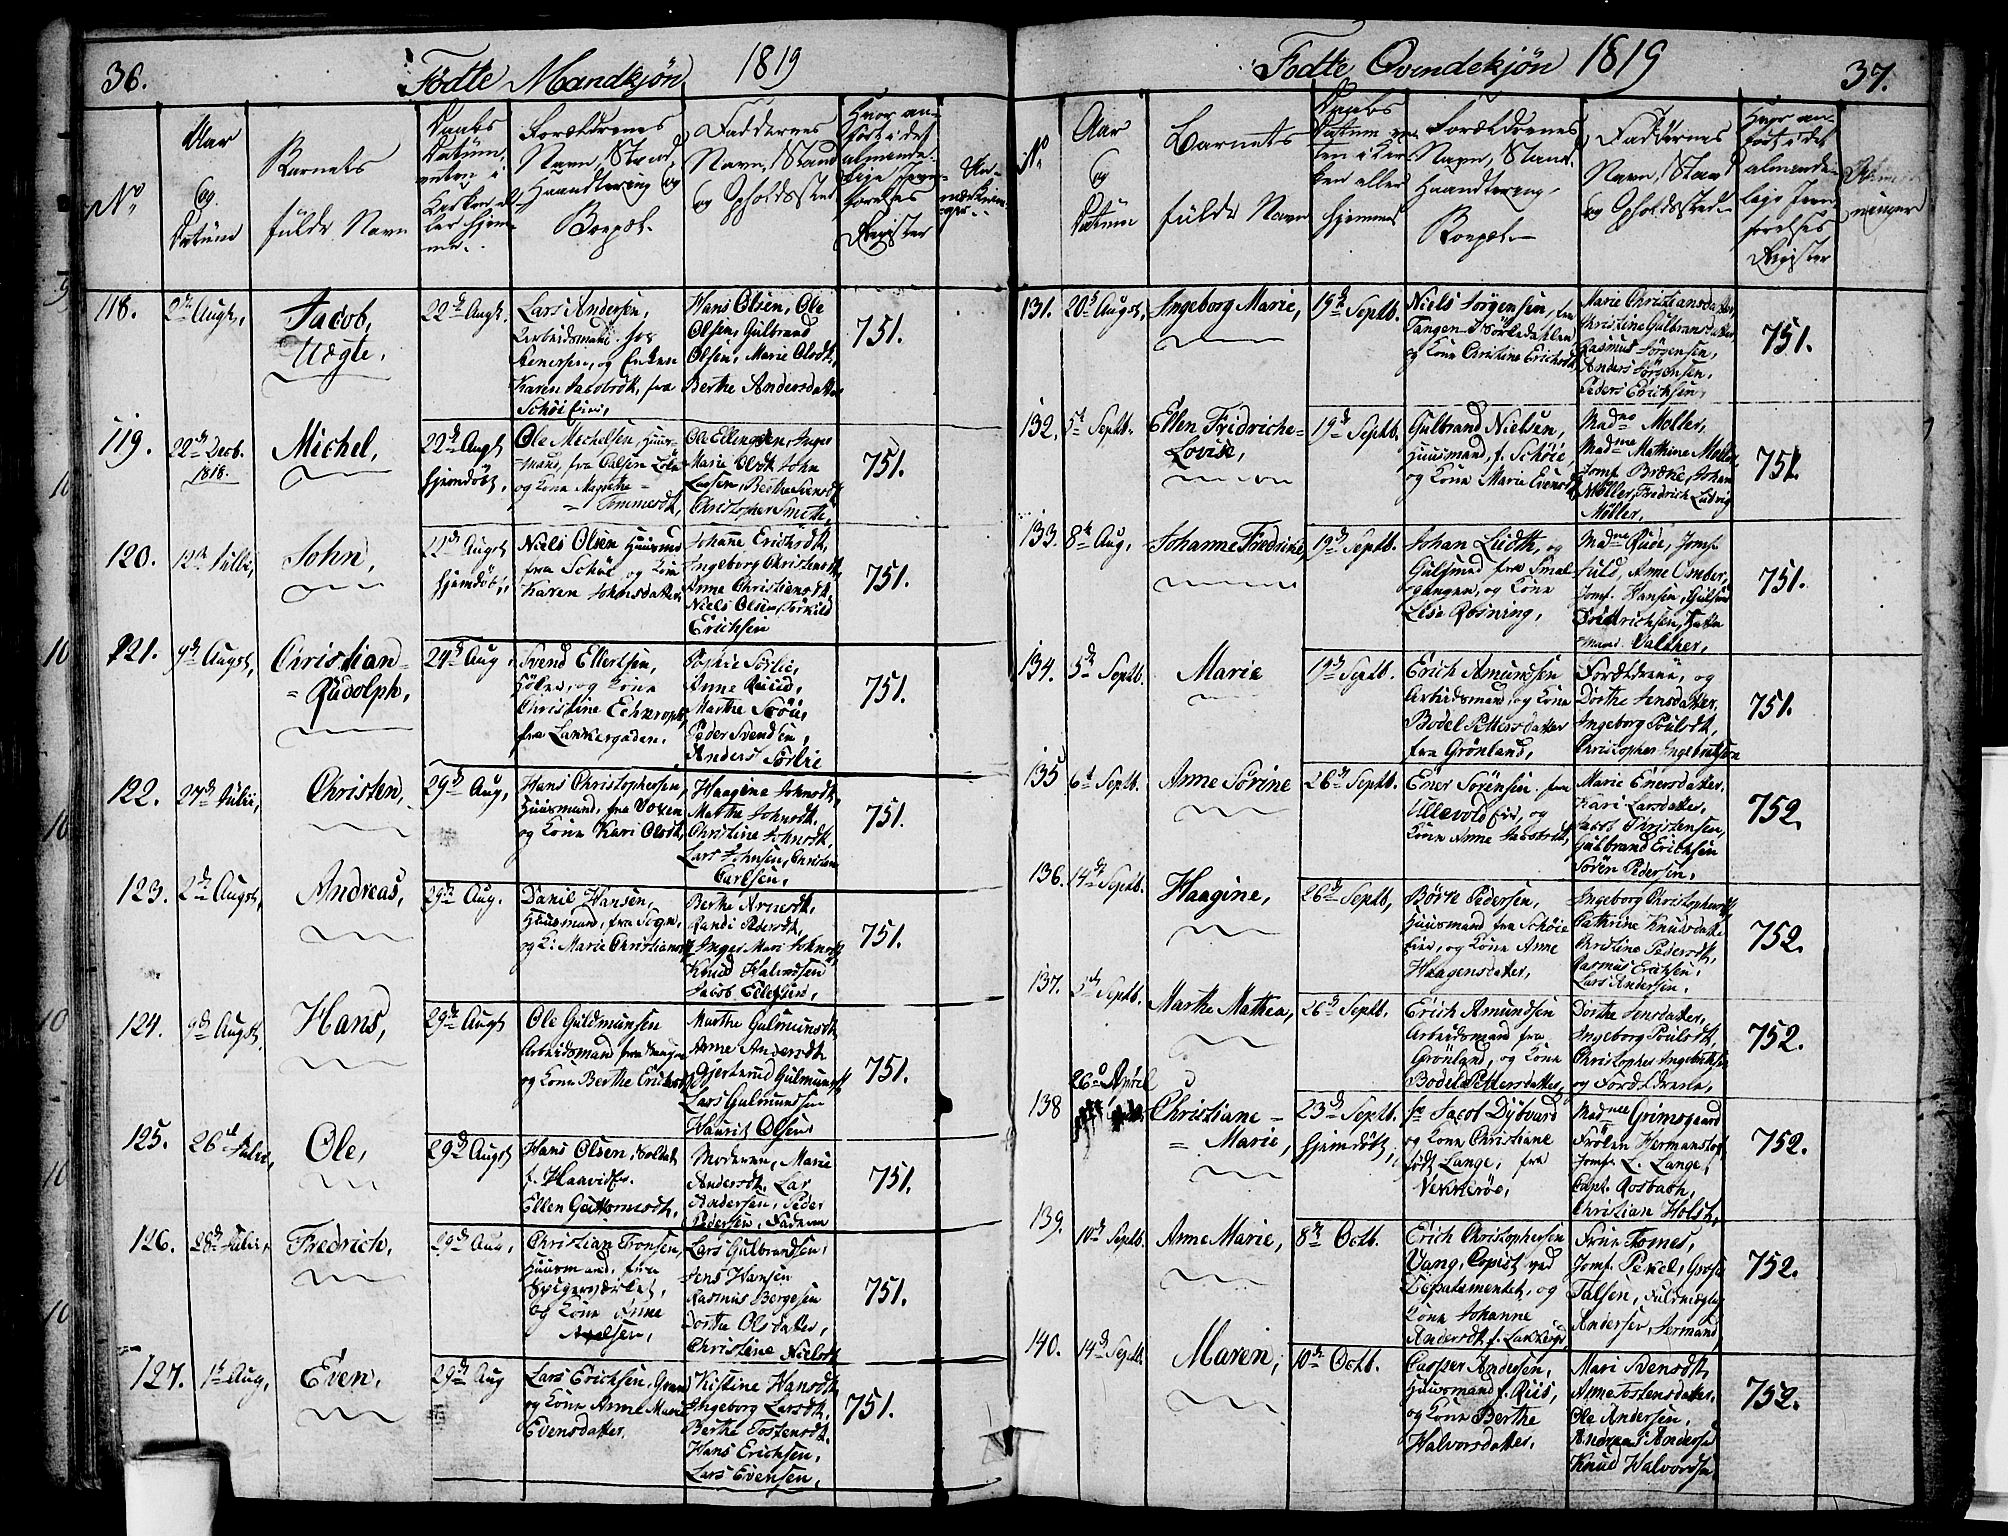 36.
Födte Mandkjön
1819
No
Aar
og
Datum
Barnets
fulde Navn
Daabs
Datum,
enten i
Kirken el
ler hjem
me.
Forældrenes
Navn, Stand,
Haandtering og
Boepæl.
Faddernes
Navn, Stand
og Opholdssted
Hvor an-
ført i det
alminde-
lige Jevn-
førelses
Register
An-
mærknin-
ger.
118.
2de Augt,
Jacob,
Uægte,
22de Augt.
Lars Andersen,
Arbeidsmand. hos
og Enken
Karen Jacobsdt, fra
Schöi Eier,
Hans Olsen, Ole
Olsen, Gulbrand
Olsen, Marie Olsdt,
Berthe Andersdatter
751.
119.
22de Decb.
1818.
Michel,
22de Augt
hjemdöbt,
Ole Mechelsen, Huus-
mand, fra
og Kone Magrethe
= Tommesdt,
Ole Ellingsen, Inger
Marie Olsdt, John
Larsen, Berthe Svensdt
Christopher Smette,
751.
120.
12te Julii,
John,
22de Augst
hjemdöbt,
Niels Olsen Huusmd
fra Schöi og Kone
Karen Johnsdatter,
Johanne Erichsdt,
Ingeborg Christensdt,
Anne Christiansdt,
Niels Olsen, Torkild
Erichsen
751.
121.
9de Augst,
Christian=
= Rudolph,
24de Aug,
Svend Ellertsen,
og Kone
Christine
fra Lakkergaden.
Sophie Sörlie,
Anne Ruud,
Marthe
Peder Svendsen,
Anders Sörlie
751.
122.
27de Julii,
Christen,
29de Aug,
Hans Christophersen,
Huusmand, fra Voxen
og Kone Kari Olsdt,
Haagine Johnsdt,
Marthe Johnsdt,
Christine Johnsdt,
Lars Johnsen, Christian
Carlsen,
751.
123.
2de Augst,
Andreas,
29de Aug.
Daniel Hansen,
Huusmand, fra Sogn,
og K: Marie Christiansdt
Berthe Arnesdt,
Randi Pedersdt,
Inger Mari Johnsdt
Knud Halvorsen
Jacob Pedersen,
751.
124.
9de Augst.
Hans,
29de Augst
Ole Guldmunsen
Arbeidsmand fra
og Kone Berthe Erichsdt
Marthe Gulmunsdt
Anne Andersdt
Gjertrud Gulmunsdt
Lars Gulmundsen
Haurit Olsen
751.
125.
26de Julii,
Ole,
29de Augst
Hans Olsen, Soldat
f. Haavid
Ellen Guttormsdt,
Moderen, Marie
Andersdt, Lar
Andersen, Peder
Pedersen, Faderen
751.
126.
28de Julii,
Fredrich,
29de Aug,
Christian Tronsen,
Huusmand, fra
og Kone Anne
Axelsen,
Lars Gulbrandsen,
Jens Hansen
Rasmus Bergesen
Dorthe Olsdatter,
Christine Nielsdt
751.
127.
1te Aug,
Even,
29de Aug
Lars Erichsen,
og Kone Anne Marie
Edensdatter.
Kistine Hansdt,
Ingeborg Larsdt,
Berthe Tostensdt.
Hans Erichsen,
Lars Evensen,
751.
Födte Qvindekjön 1819
37.
No
Aar
og
Datum
Barnets
fulde Navn
Daabs
Datum en
ten i Kir
ken eller
hjemme
Forældrenes
Navn, Stand,
Haandtering,
Boepæl.
Faddernes
Navn, Stand
og Opholdssted.
Hvor an
ført i det
alminde-
lige Jevn-
førelses
Register
131.
20de Augst,
Ingeborg Marie,
19de Septb.
Niels Jörgensen, fra
Tangen i Sörkedahlen
og Kone Christine Erichsdt,
Marie Christiansdatter,
Christine Gulbransdatter
Rasmus Jörgensen,
Anders Jörgensen,
Peders Erichsen,
751.
132.
5te Septb.
Ellen Fredriche=
Lovise,
19de Septb.
Gulbrand Nielsen,
Huusmand, f. Schöie
og Kone Marie Evensdt,
Madme Moller,
Madme Mathine Moller
Jomf. Bræke, Johan
Möller, Fredrich Ludvig
Möller,
751.
133.
8de Aug,
Johanne Fredrine,
19de Septb.
Johan Lüdth, og
fra Smal
gangen, og Kone
Lise Rosning,
Madme Rude, Jomf.
Juld, Anne Omber,
Jomf. Hansen,
Fridrichsen,
Valther,
751.
134.
5de Septb.
Marie
19de Septb.
Erich Amundsen
Arbeidsmand, og Kone
Bodel Pettersdatter
fra Grönland,
Forældrene, og
Dorthe Jensdatter,
Ingeborg Poulsdt,
Christopher Ingebretsen
751.
135
6te Septb.
Anne Sörine
26de Septb.
Ener Sörensen. fra
Ullevold Eie, og
Kone Anne Jacobsdt,
Marie Enersdatter.
Kari Larsdatter,
Jacob Christensen,
Gulbrand Erichsen
Sören Pedersen,
752.
136.
14de Septb.
Haagine,
26de Septb,
Börre Pedersen,
Huusmand fra Schöie
Eier, og Kone Anne
Haagensdatter,
Ingeborg Christophersdt,
Cathrine Knudsdatter
Christine Pedersdt,
Rasmus Erichsen,
Lars Andersen,
752.
137.
5te Septb.
Marthe Mathea,
26de Septb.
Erich Amundsen
Arbeidsmand fra
Grönland, og Kone
Bodel Pettersdatter,
Dorthe Jensdatter,
Ingeborg Poulsdt,
Christopher Ingebretsen
og Forældrene,
752.
138
26de Aprel
Christiane=
= Marie,
23de Septb.
hjemdöbt,
Hr Jacob Dybvard
og Kone Christiane
födt Lange, fra
Vækkeröe,
Madme Grimsgaard
Frölen Hermanstoft
Jomf. L. Lange,
Capt. Rosbach,
Christian Holst,
752.
139.
10de Septb.
Anne Marie,
8de Octb.
Erich Christophersen
Vang, Copist ved
Departementet, og
Kone Johanne
Andersdt, f. Lakkergd
Frue Tomes,
Jomf. Pekel,
Falsen, Fuldmægtig
Andersen,
752.
140.
14de Septb.
Maren,
10de Octb.
Casper Andersen,
Huusmand f. Riis,
og Kone Berthe
Halvorsdatter,
Mari Svensdt,
Anne Tostensdatter,
Ole Andersen,
Andreas Andersen
Knud Halvorsen
752.